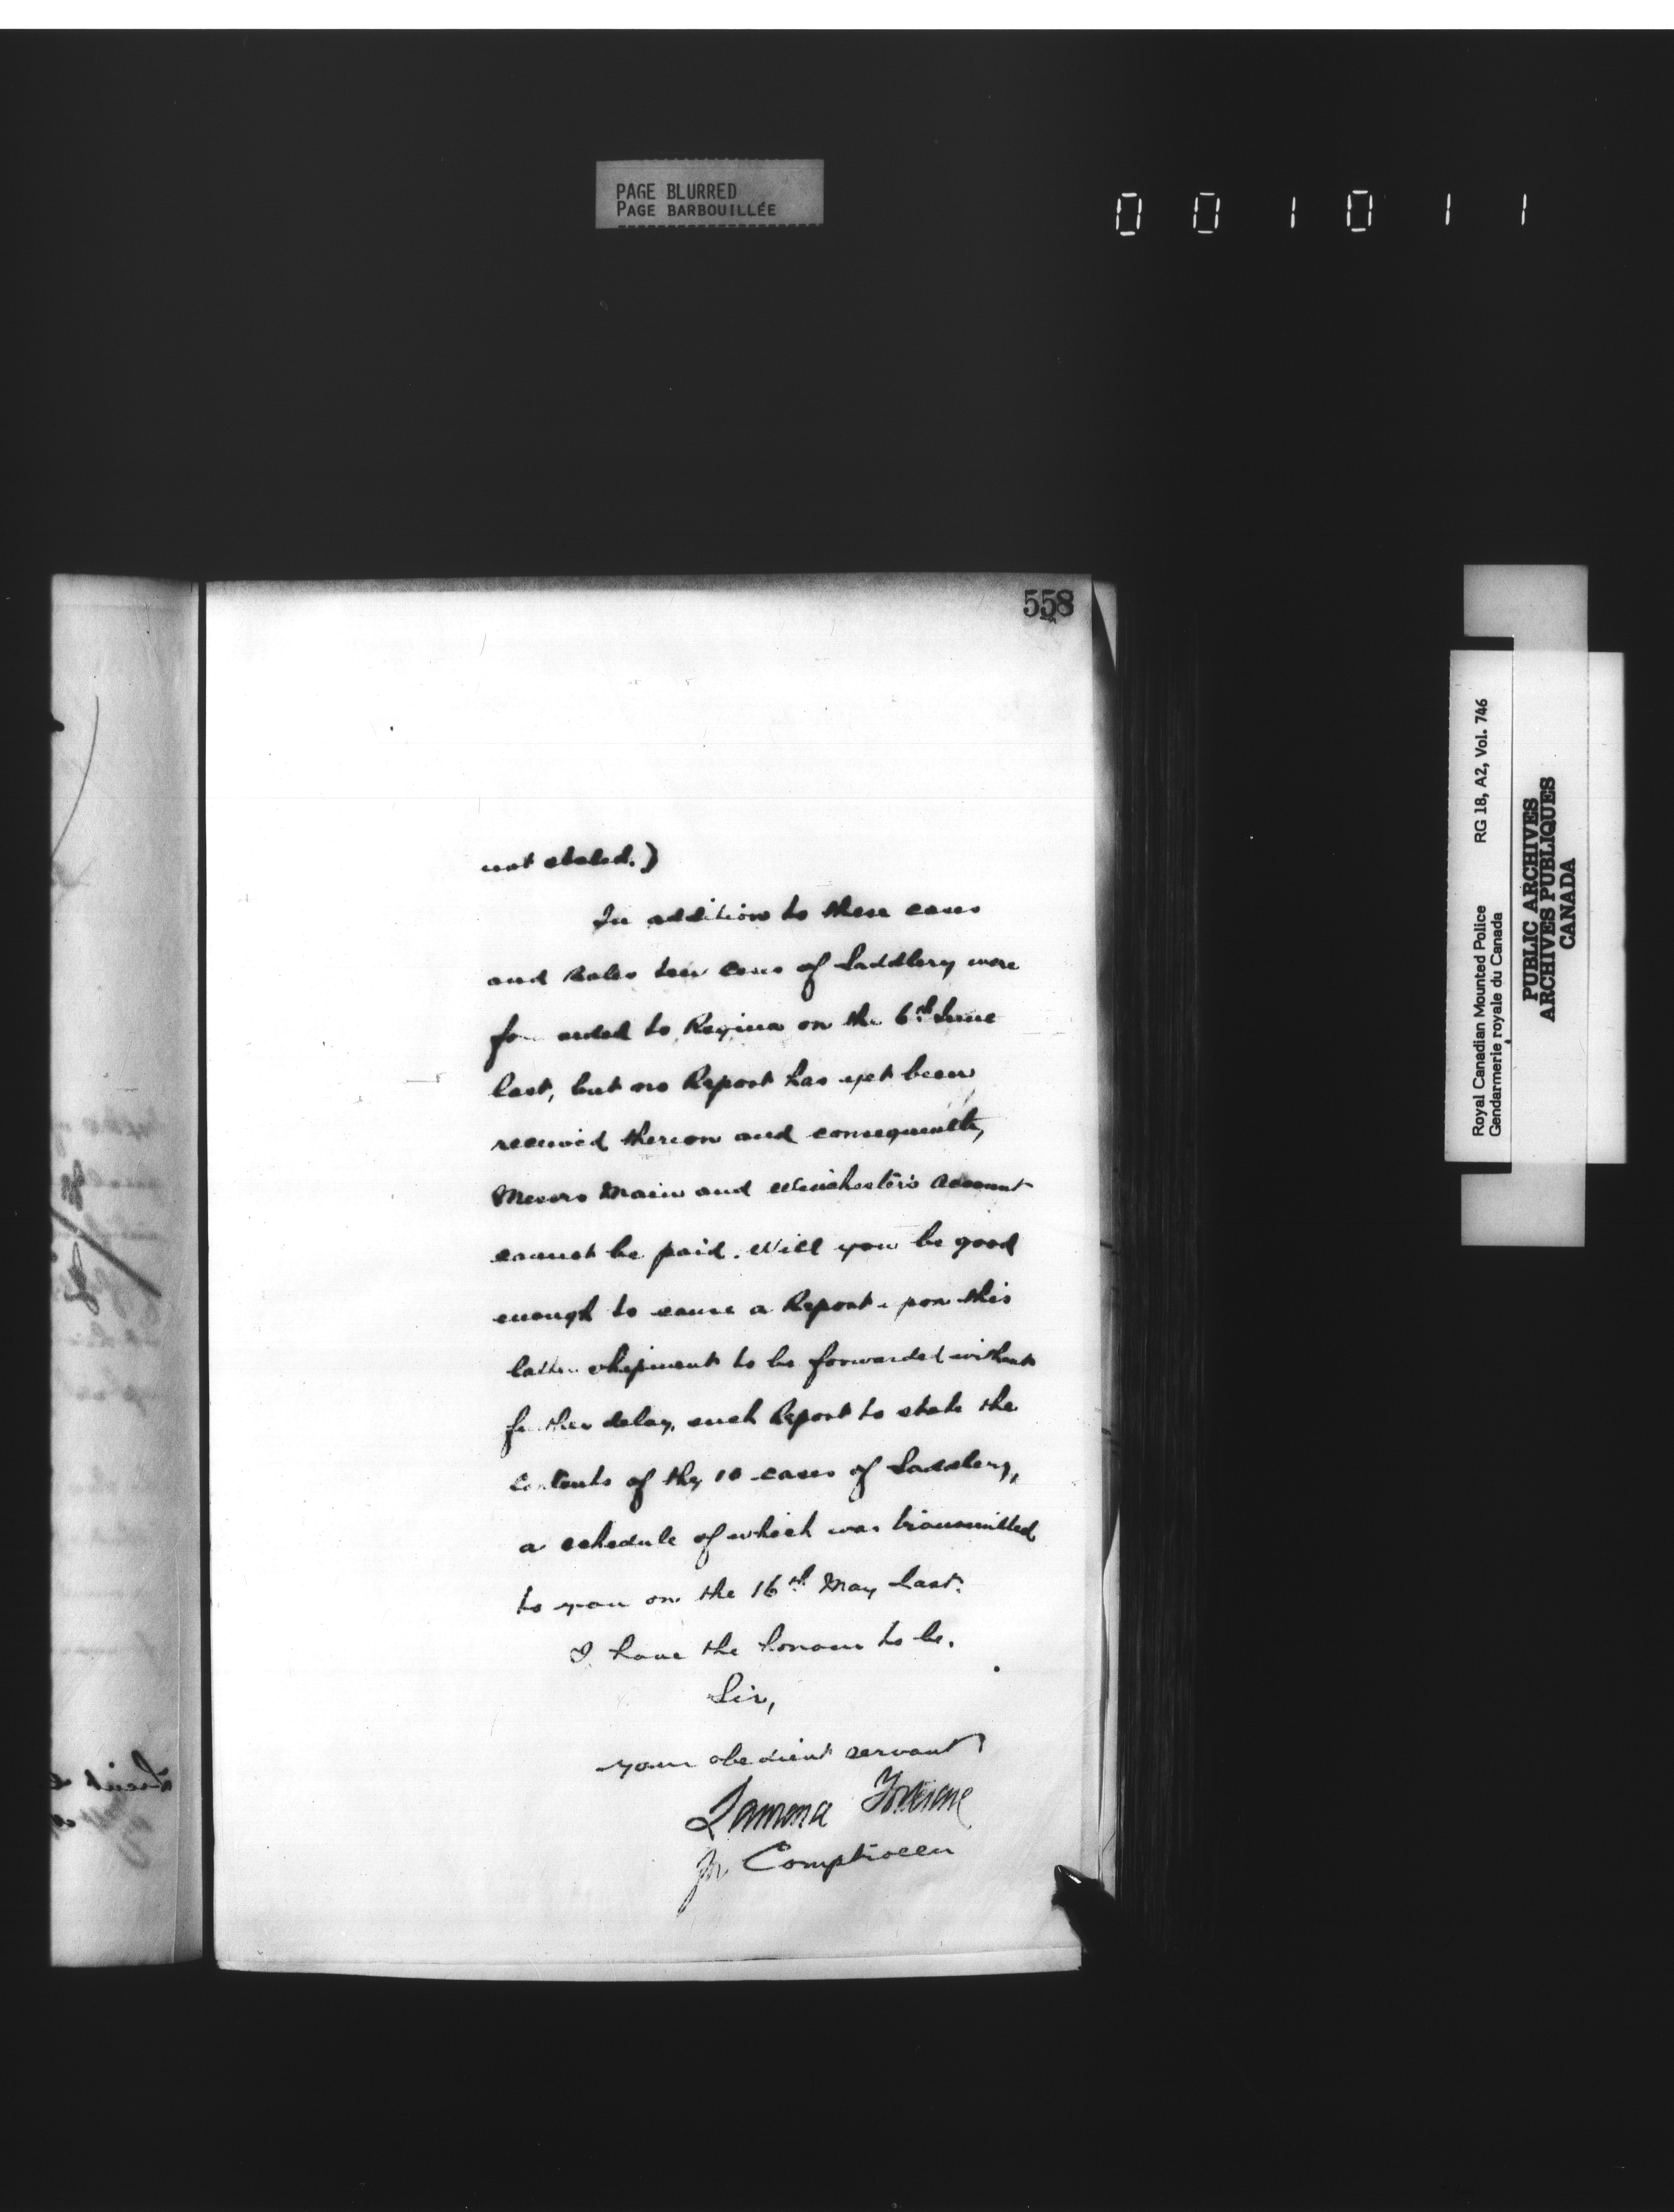 PAGE BLURRED
PAGE BARBOUILLÉE
001011
558
not stated.)
In addition to these cases
and bales ten cases of Saddlery were
forwarded to Regina on the 6th June
last, but no Report has yet been
received thereon and consequently
Messrs Main and Winchester's account
cannot be paid. Will you be good
enough to cause a Report upon this
latter shipment to be forwarded without
further delay, such Report to state the
contents of the 10 cases of Saddlery,
a schedule of which was transmitted
to you on the 16th May last.
I have the honour to be,
Sir,
your obedient servant
for Comptroller
Royal Canadian Mounted Police RG 18, A2, Vol. 746
Gendarmerie royale du Canada
PUBLIC ARCHIVES
ARCHIVES PUBLIQUES
CANADA